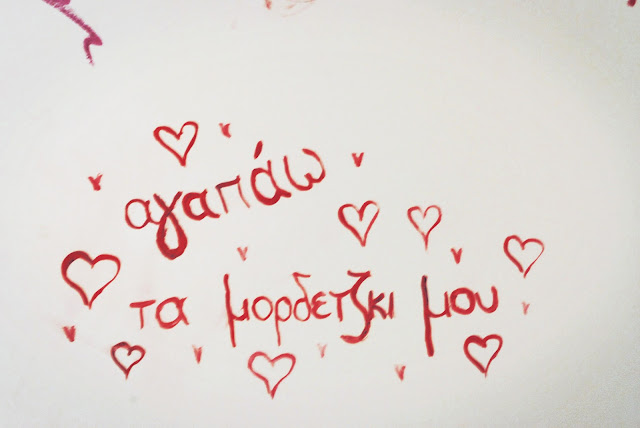 αγαπάω
τα μορδετζκι μου